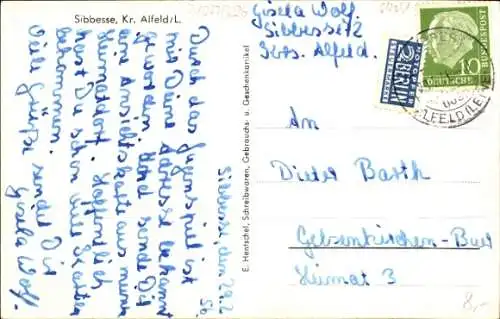 Sibbesse, Kr. Alfeld/L.
Gisela Wolf.
Sibbesse 12
Krs. Alfeld.
NOTOPFER
2 BERLIN
STEUERMARKE
DEUTSCHE BUNDESPOST
10
ALFELD (LEINE)
Sibbesse, den 29.2.
56.
Durch das Jugenspiel ist
mir Deine Adresse bekannt
geworden. Und sende Dir
eine Ansichtskarte aus mein
Heimatdorf. Hoffentlich
hast Du schon viele Karten
bekommen.
Viele Grüße sendet Dir
Gisela Wolf.
E. Hentschel, Schreibwaren, Gebrauchs- u. Geschenkartikel
An
Dieter Barth
Gelsenkirchen-Buer
Heimat 3
8,-